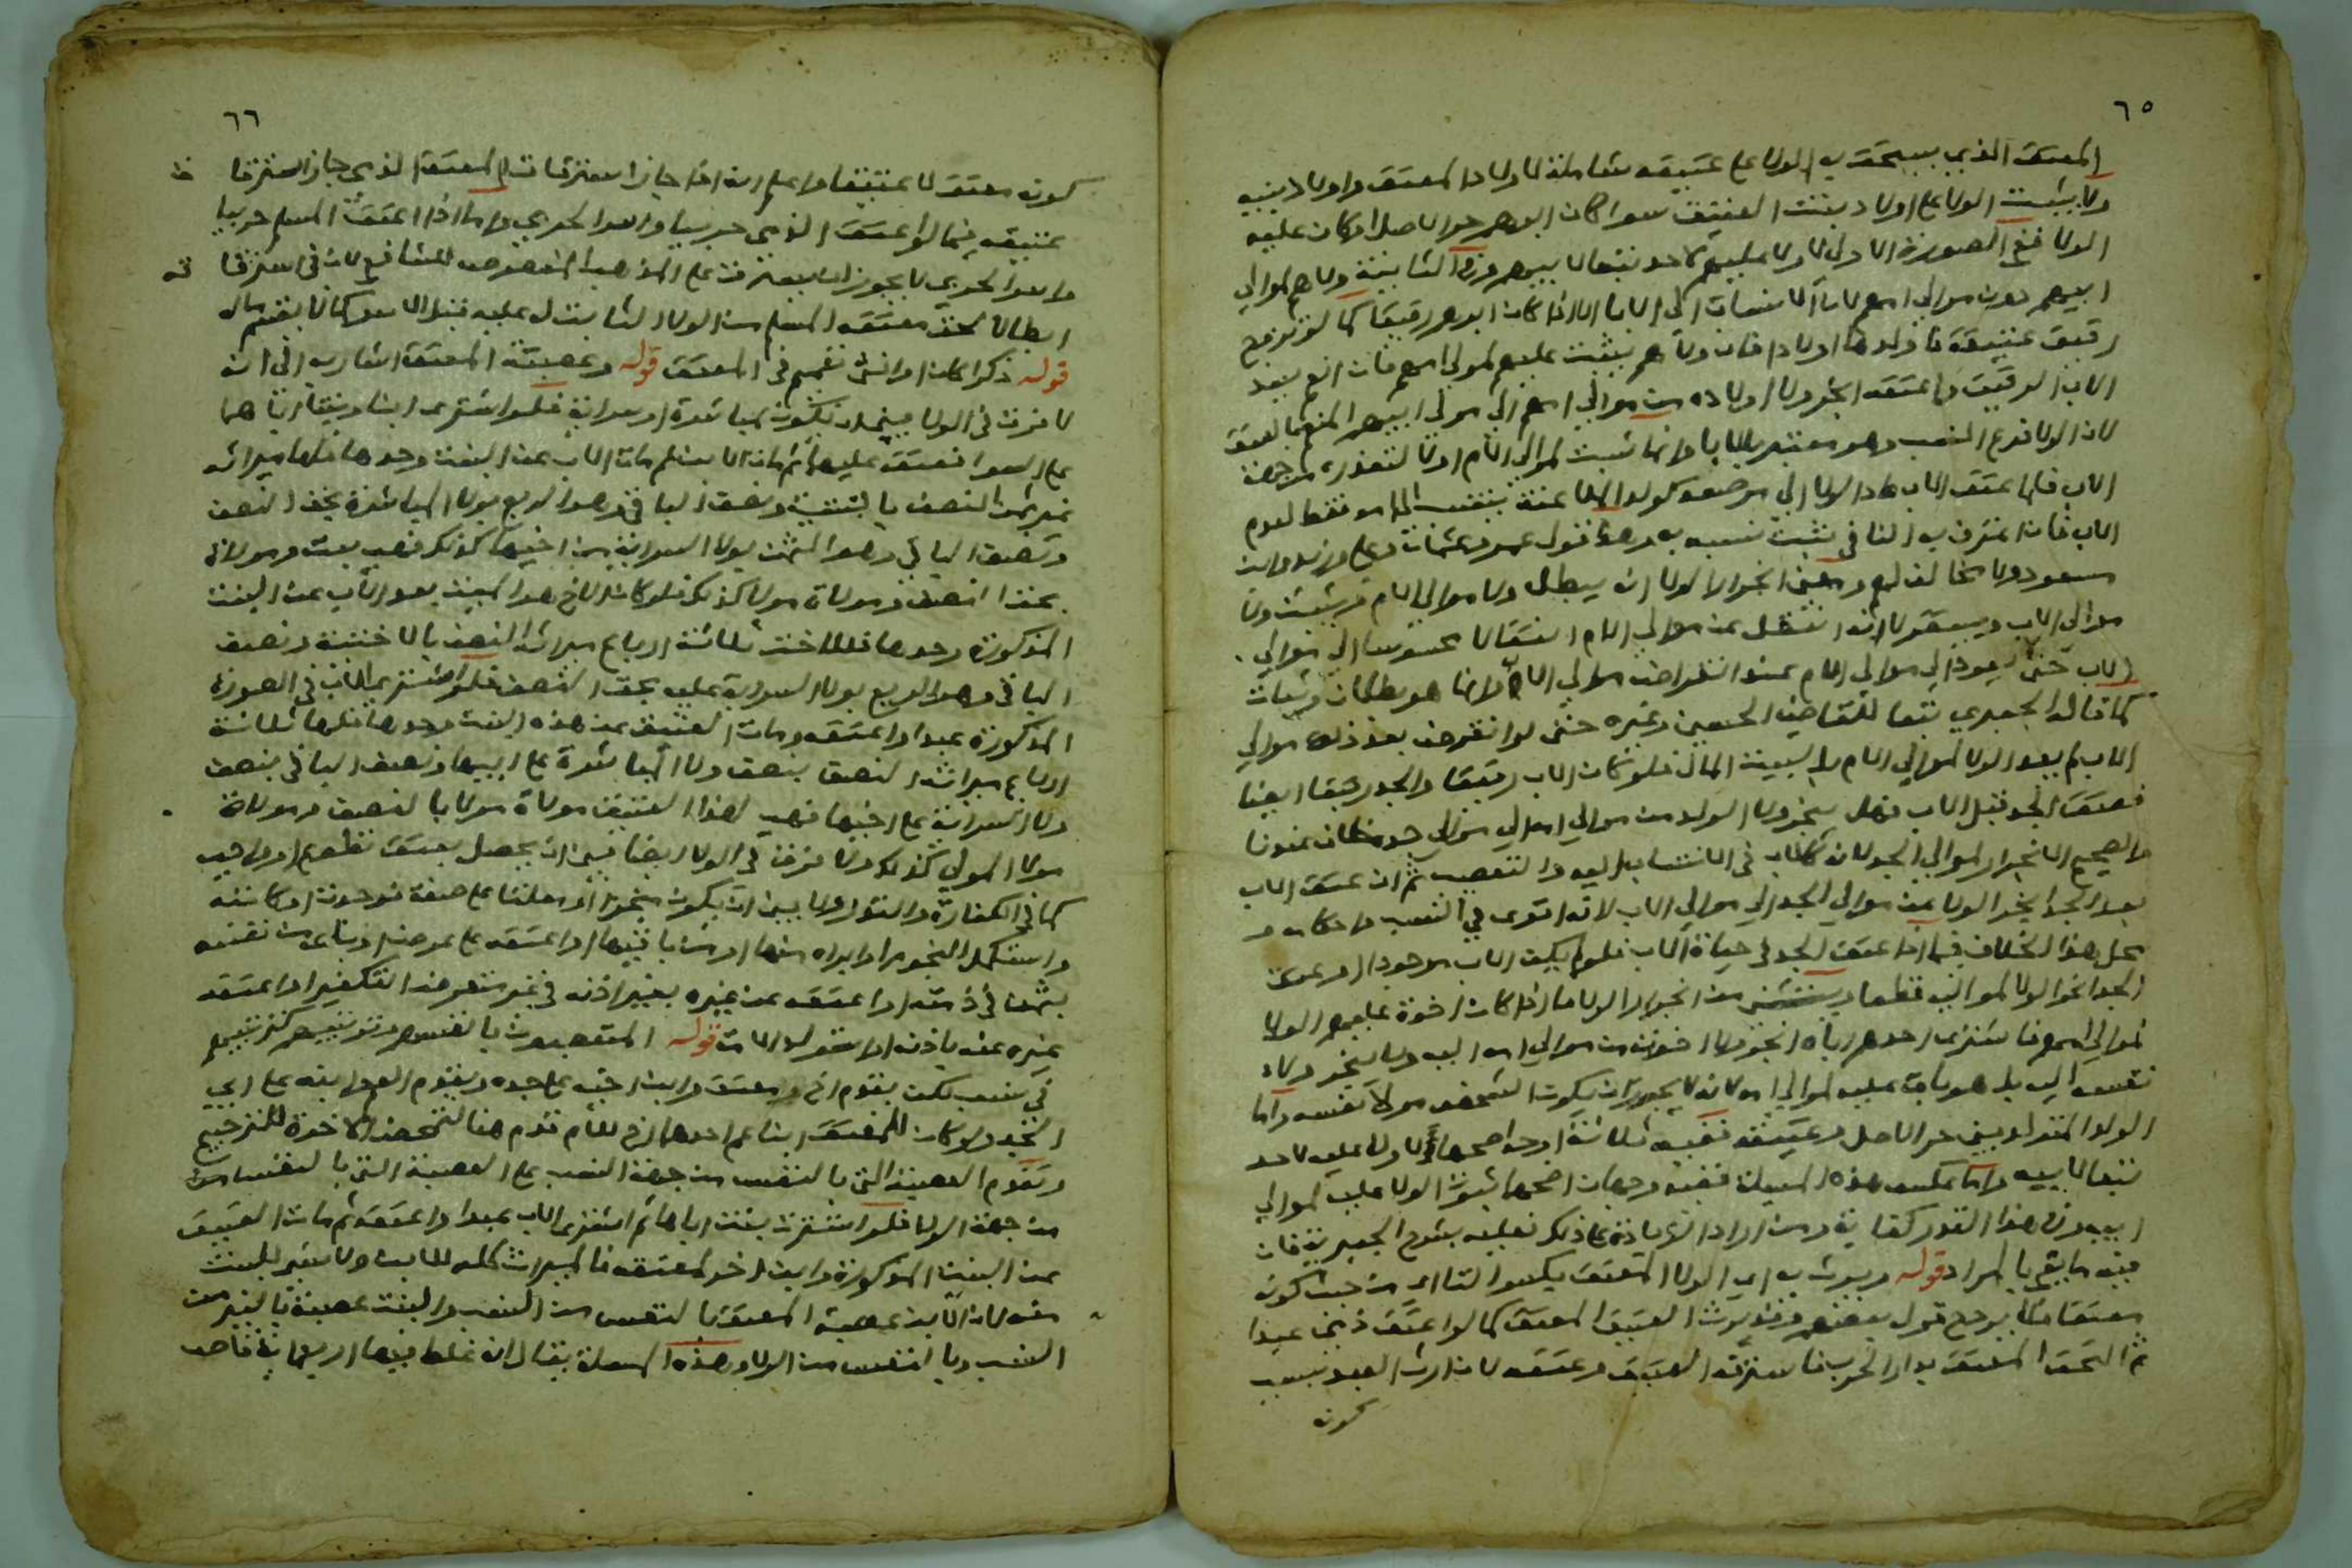 ٦٥
المعتق الذي يستحق به الولاء على عتيقه شاملة لاولاد المعتق واولاد بنيه
ولا يثبت الولا على اولاد بنت العتيق سوا كان ابوهم حر الاصل او كان عليه
الولا ففي الصورة الاولى لا ولا عليهم لاحد تبعا لابيهم وفي الثانية ولاهم لموالي
ابيهم دون موالي امهم لان الانتساب الى الابا الا اذا كان ابوهم رقيقا كما لو تزوج
رقيق عتيقة فاولدها اولادا فان ولاهم يثبت عليهم لموالي امهم فان اعتق بعد
الاب الرقيق واعتقه انجر ولا اولاده من موالي امهم الى موالي ابيهم المنعم بالعتق
لان الولا فرع النسب وهو معتبر بالابا وانما ثبت لموالي الام اولا لتعذره من جهة
الاب فاذا عتق الاب عاد الولا الى موضعه كولد الملاعنة ينتسب الى امه فقط لعدم
الاب فان اعترف به النافي ثبت نسبه به وهذا قول عمر وعثمان وعلي وزيد وابن
مسعود ولا مخالف لهم ومعنى انجرار الولا ان يبطل ولا موالي الام ويثبت ولا
موالي الاب وبقولنا انه انتقل عن موالي الام انتقالا محسوسا الى موالي
الاب حتى يعود الى موالي الام عند انقراض موالي الاب وانما هو بطلان وثبات
كما قاله الجعبري تبعا للقاضي الحسين وغيره حتى لو انقرض بعد ذلك موالي
الاب لم يعد الولا لموالي الام بل لبيت المال فلو كان الاب رقيقا والجد رقيقا ايضا
فعتق الجد قبل الاب فهل ينجر ولا الولد من موالي امه الى موالي جده خلاف عندنا
والصحيح الانجرار لموالي الجد لانه كالاب في الانتساب اليه والتعصيب ثم ان عتق الاب
بعد الجد انجر الولا من موالي الجد الى موالي الاب لانه اقوى في النسب واحكامه و
محل هذا الخلاف فيما اذا عتق الجد في حياة الاب فلو لم يكن الاب موجودا وعتق
الجد انجر الولا لمواليه قطعا ويستثنى من انجرار الولا ما اذا كان اخوة عليهم الولا
لموالي امهم فاشترى احدهم اباه انجر ولا اخوته من موالي امه اليه ولا ينجر ولاء
نفسه اليه بل هو باق عليه لموالي امه لانه لا يجوز ان يكون الشخص مولى نفسه واما
الولد المتولد بين حر الاصل وعتيقة ففيه ثلاثة اوجه اصحها لا ولا عليه لاحد
تبعا لابيه واما عكس هذه المسيلة ففيه وجهان اصحهما ثبوت الولا عليه لموالي
ابيه وفي هذا القدر كفاية ومن اراد الزيادة على ذلك فعليه بشرح الجعبرية فان
فيه ما يفي بالمراد قوله ويورث به اي الولا المعتق بكسر التا اي من حيث كونه
معتقا فلا يرد قول بعضهم وقد يورث العتيق المعتق كما لو اعتق ذمي عبدا
ثم التحق المعتق بدار الحرب فاسترقه العتيق وعتقه لان ارث العبد بسبب
كونه
٦٦
كونه معتقا لا عتيقا واعلم انه اذا جاز استرقاق المعتق الذي جاز استرقا
عتيقه فيما لو اعتق الذمي حربيا واسر الحربي واما اذا اعتق المسلم حربيا
واسر الحربي لا يجوز ان يسترق على المذهب المنصوص للشافعي لان في استرقا قه
ابطالا لحق معتقه المسلم من الولا الثابت له عليه قبل الاسر كما لا يغنم ماله
قوله ذكرا كان او انثى تعميم في المعتق قوله وعصبة المعتق اشار به الى انه
لا فرق في الولا بين ان يكون بمباشرة او سراية فلو اشترى ابنا وبنتا اباهما
على السوا فعتق عليهما ثم مات الابن ثم مات الاب عن البنت وحدها فلها ميراثه
نصف النصف بالبنتية ونصف الباقي وهو الربع بولا المباشرة بحق النصف
ونصف الباقي وهو الثمن بولا السراية من اخيها كذلك فهي بنت ومولاة
بحق النصف ومولاة مولا كذلك فلو كان الاخ هو الميت بعد الاب عن البنت
المذكورة وحدها فللاخت ثلاثة ارباع ميراثه النصف بالاختية ونصف
الباقي وهو الربع بولا السراية عليه بحق النصف فلو اشترى الاب في الصورة
المذكورة عبدا واعتقه ومات العتيق عن هذه البنت وحدها فلها ثلاثة
ارباع ميراثه النصف بنصف ولا المباشرة على ابيها ونصف الباقي بنصف
ولا السراية على اخيها فهي لهذا العتيق مولاة مولا بالنصف ومولاة
مولا المولى كذلك ولا فرق في الولا ايضا بين ان يحصل بعتق تطوع او واجب
كما في الكفارة والنذر ولا بين ان يكون منجزا او معلقا على صفة فوجدت او كاتبه
واستكمل النجوم او ابراه منها او من باقيها او اعتقه على عوض او باعه من نفسه
بثمن في ذمته او اعتقه عن غيره بغير اذنه في غير التكفير او اعتقه
غيره عنه باذنه او استولد امة قوله المتعصبون بانفسهم وترتيبهم كترتيبهم
في نسب لكن يقدم اخ ومعتق وابن اخيه على جده ويقدم العم وابنه على ابي
الجد ولو كان للمعتق ابنا عم احدهما اخ للام قدم هنا لتمحض الاخوة للترجيح
وتقدم العصبة التي بالنفس من جهة النسب على العصبة التي بالنفس من
من جهة الولا فلو اشترت بنت اباها ثم اشترى الاب عبدا واعتقه ثم مات العتيق
عن البنت المذكورة وابن اخو لمعتقه فالميراث كله للابن ولا شي للبنت
منه لان الابن عصبة المعتق بالنفس من النسب والبنت عصبة بالغير من
النسب وبالنفس من الولا وهذه المسئلة يقال انه غلط فيها اربعماية قاض